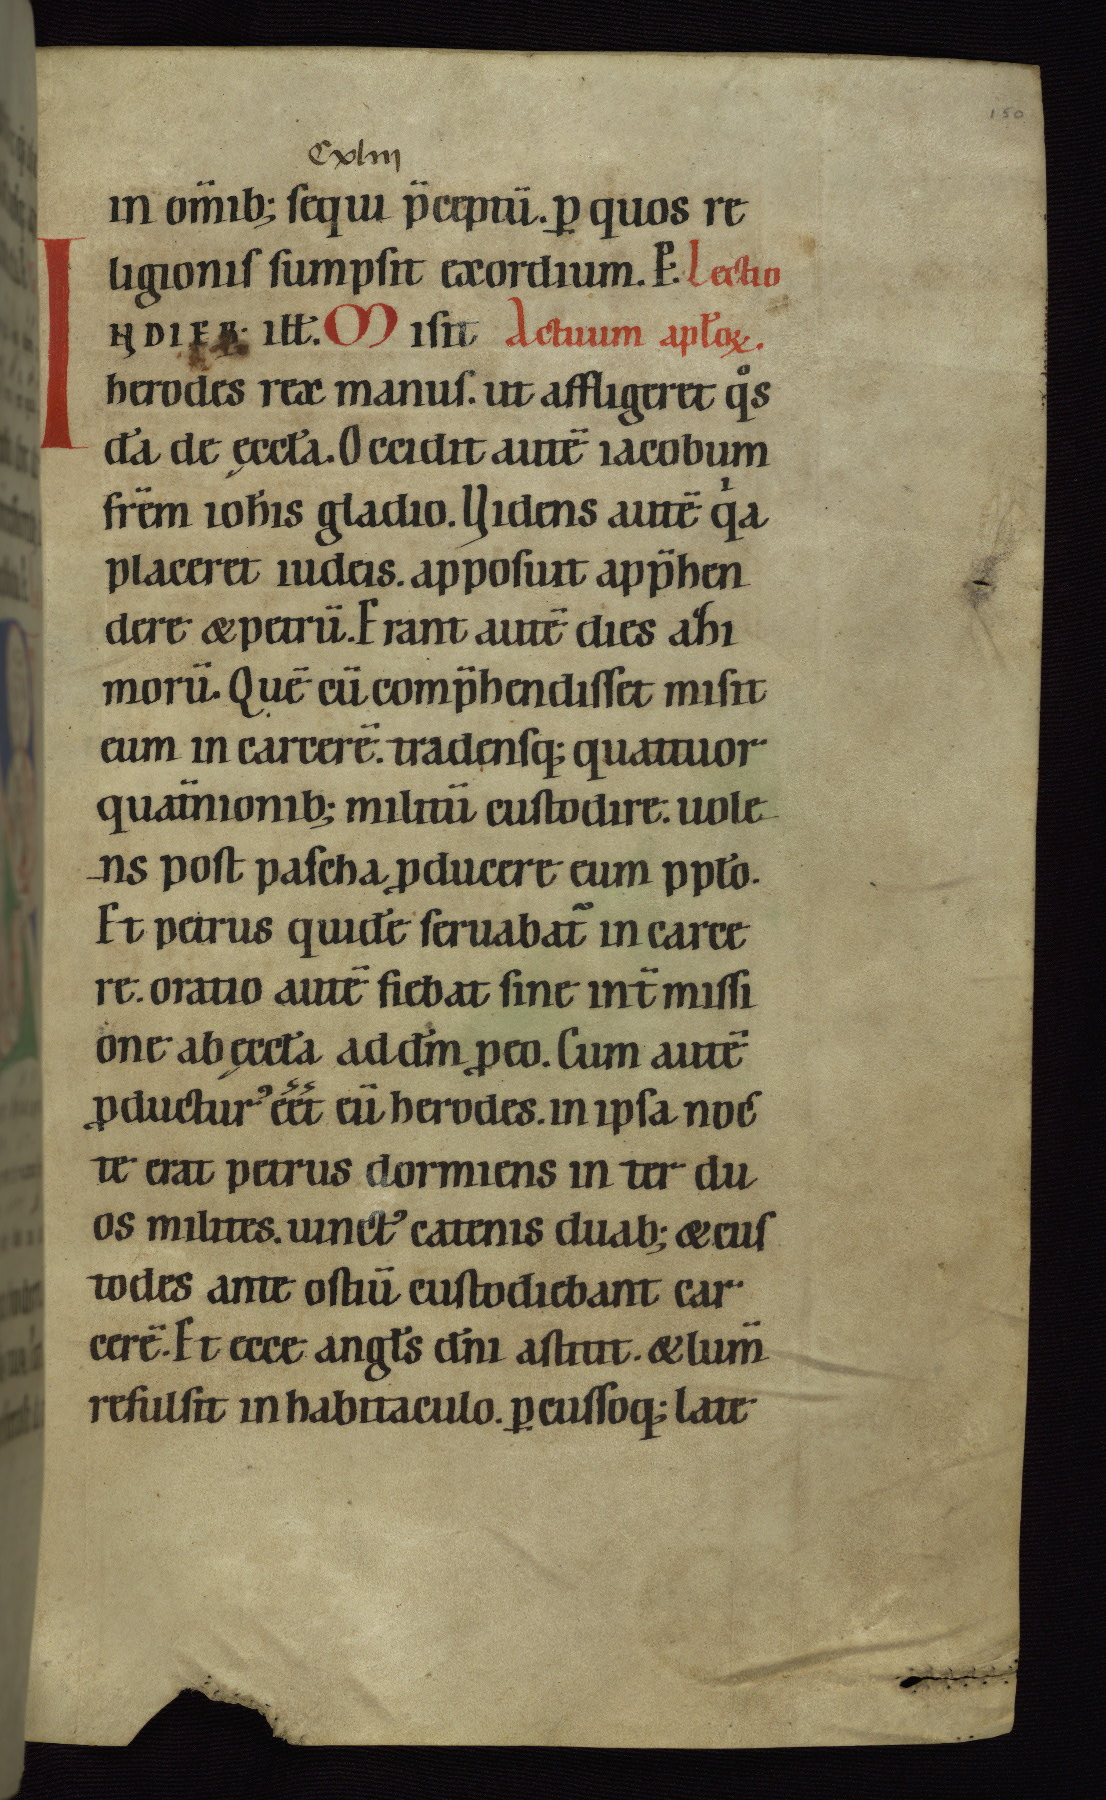 150
Cxliii
in om̄ib; sequi p̄ceptū. ꝑ quos re
ligionis sumpsit exordium. P. Lectio
IN DIEB. ILL̄. Misit Actuum apl̄oꝝ.
herodes rex manus. ut affligeret qͦs
da̅ de ęccl̄a. Occidit autē iacobum
fr̄em ioh̄is gladio. Uidens autē qͥa
placeret iudeis. apposuit app̄hen
dere & petrū. Erant autē dies azi
morū. Quē cū comp̄hendisset misit
eum in carcerē. tradensq; quattuor
quat̄nionib; militū custodire. uole
ns post pascha ꝓducere eum pplo̅.
Et petrus quide̅ seruabat̃ in carce
re. oratio autē fiebat sine int̄missi
one ab ęccl̄a ad dm̄ ꝓ eo. Cum autē
ꝓducturꝰ eēt eū herodes. in ipsa noc
te erat petrus dormiens in ter du
os milites. uinctꝰ catenis duab; & cus
todes ante ostiū custodiebant car
cerē. Et ecce angl̄s dn̄i astitit. & lum̄
refulsit in habitaculo. ꝑcussoq; late